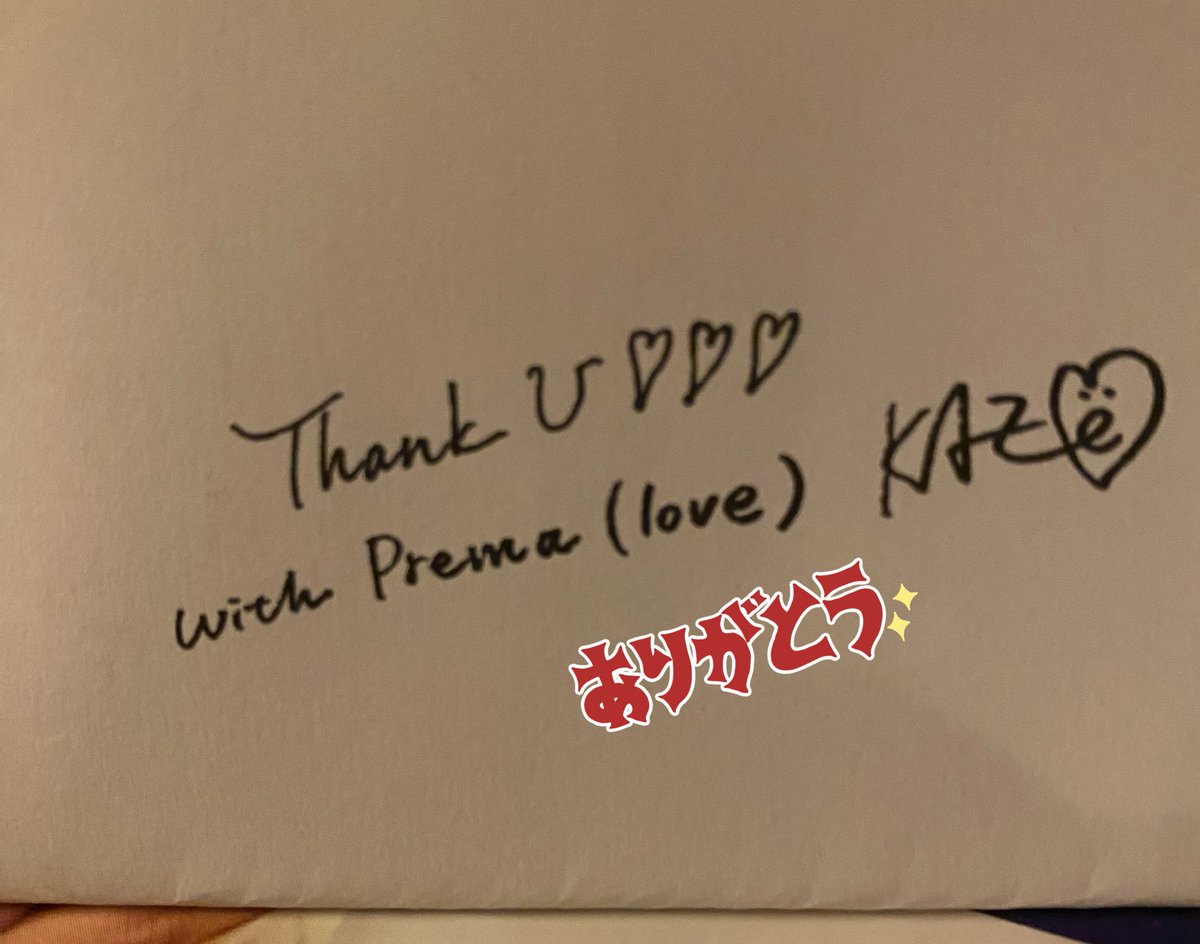 Thank U ♡♡♡
with Prema (love)
KAZë
ありがとう